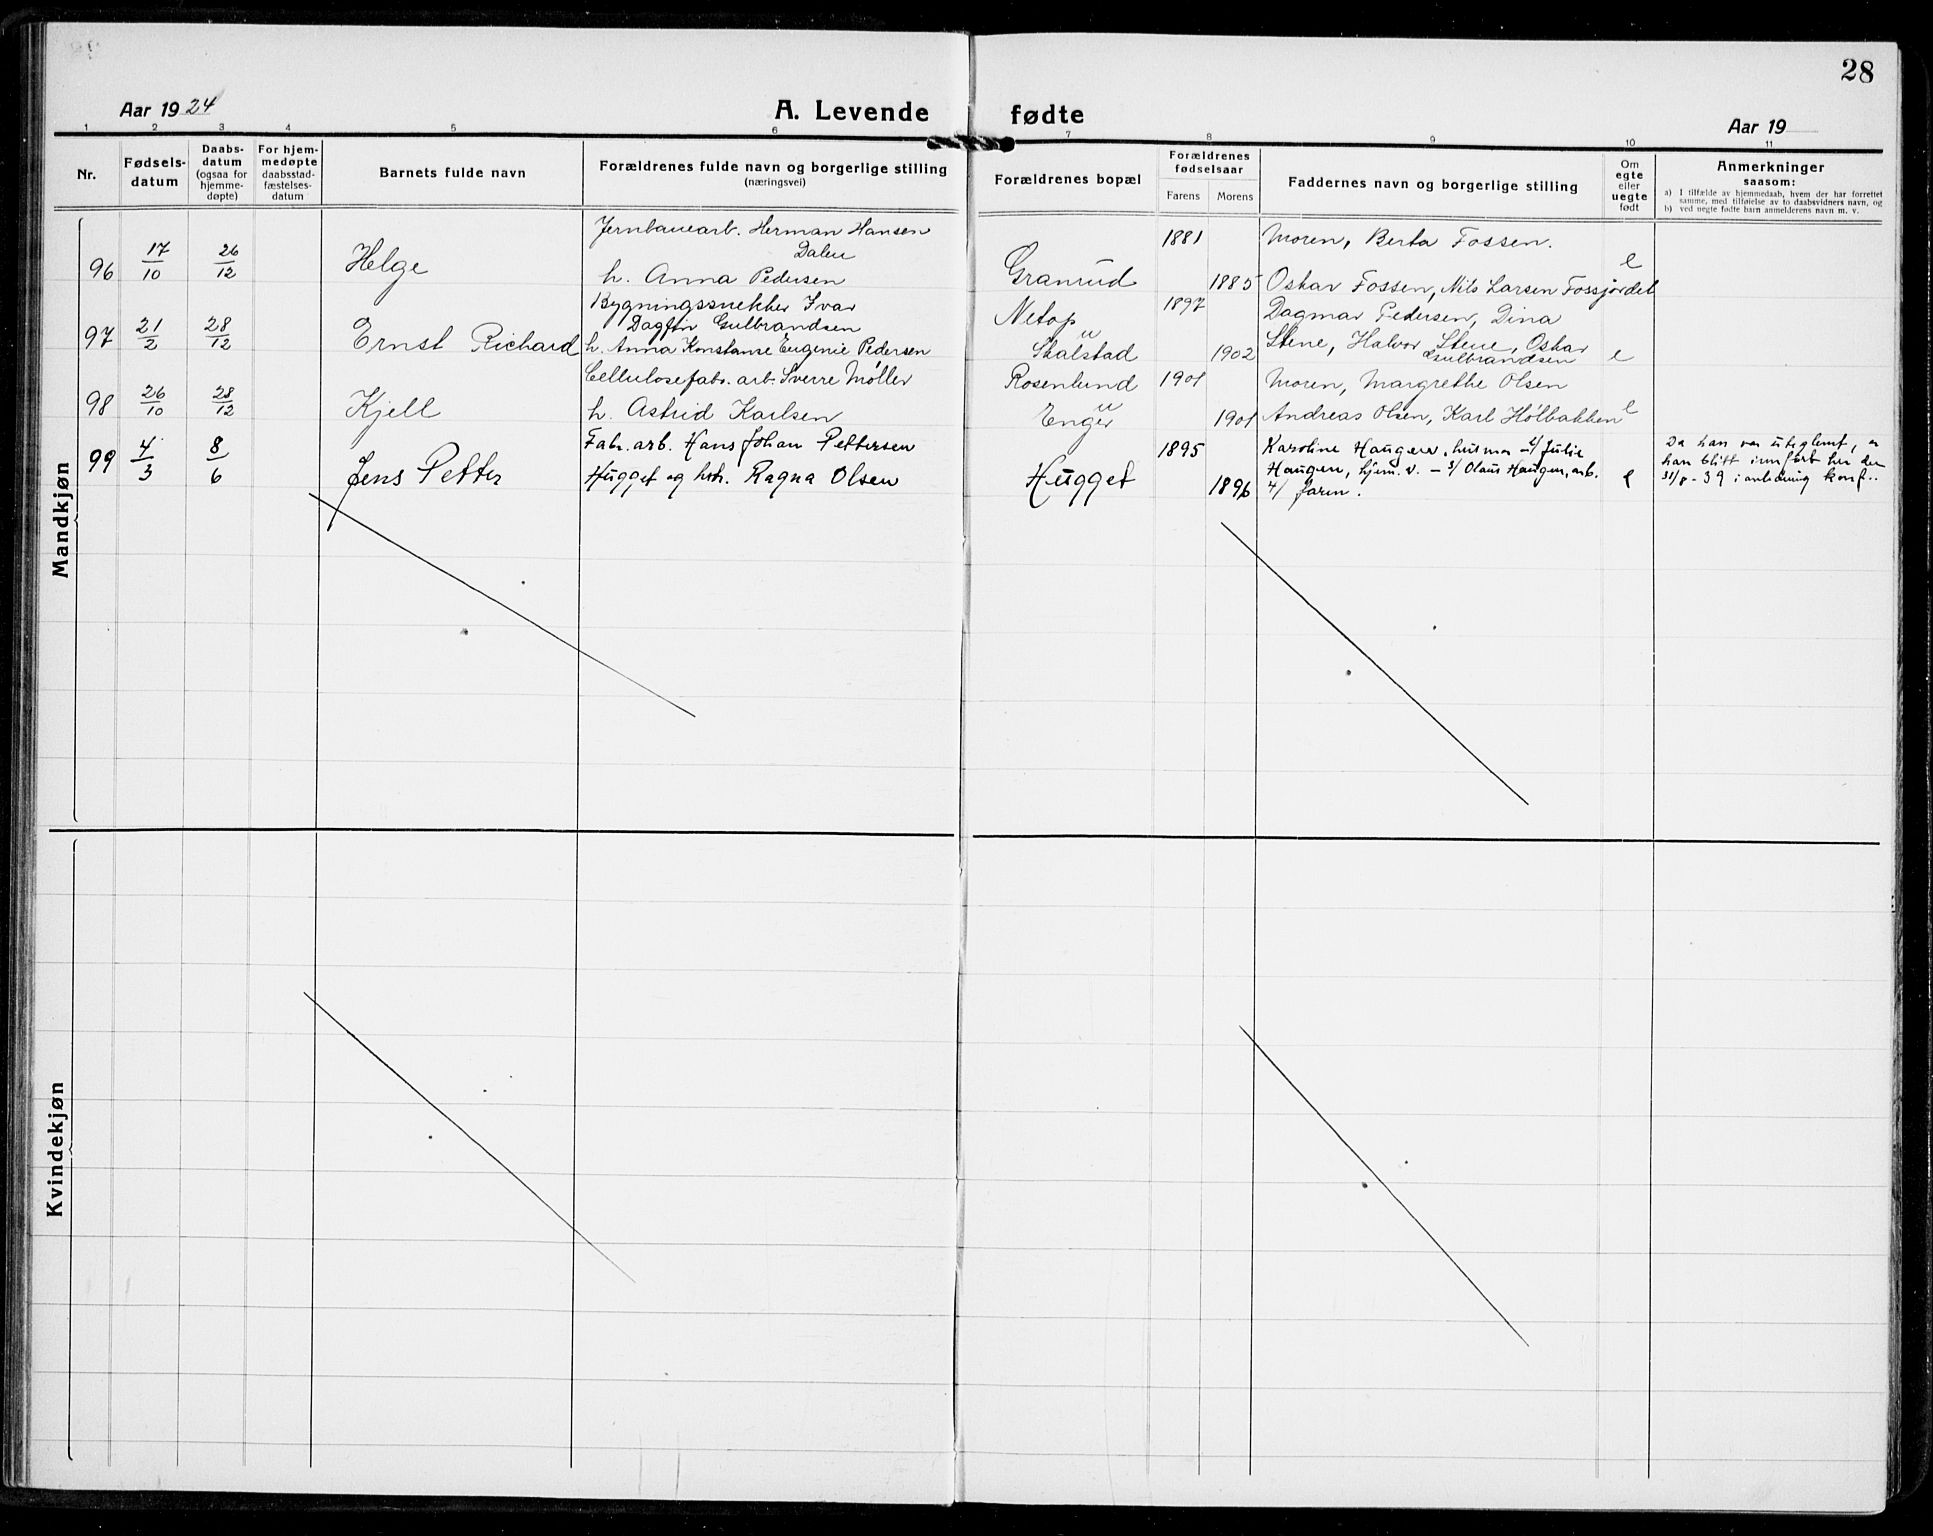 28
Aar 1924
A. Levende fødte
Aar 19
1 2 3 4 5 6 7 8 9 10 11
Nr.
Fødsels-
datum
Daabs-
datum
(ogsaa for
hjemme-
døpte)
For hjem-
medøpte
daabsstad-
fæstelses-
datum
Barnets fulde navn
Forældrenes fulde navn og borgerlige stilling
(næringsvei)
Forældrenes bopæl
Forældrenes
fødselsaar
Farens Morens
Faddernes navn og borgerlige stilling
Om
egte
eller
uegte
født
Anmerkninger
saasom:
a) I tilfælde av hjemmedaab, hvem der har forrettet
samme, med tilføielse av to daabsvidners navn, og
b) ved uegte fødte barn anmelderens navn m. v.
Mandkjøn
96 17/10 26/12 Helge
Jernbanearb. Herman Hansen
Dalen
h. Anna Pedersen
Granrud
1881 1885
Moren, Berta Fossen.
Oskar Fossen, Nils Larsen Fossjordet
e
97 21/2 28/12 Ernst Richard
Bygningssnekker Ivar
Dagfin Gulbrandsen
h. Anna Konstanse Eugenie Pedersen
Netop
"
Skalstad
1897 1902
Dagmar Pedersen, Dina
Stene, Halvor Stene, Oskar
Gulbrandsen
e
98 26/10 28/12 Kjell
Cellulosefabr. arb. Sverre Møller
h. Astrid Karlsen
Rosenlund
"
Enger
1901 1901
Moren, Margrethe Olsen
Andreas Olsen, Karl Hølbakken
e
99 4/3 8/6 Jens Petter
Fabr. arb. Hans Johan Pettersen
Hugget og hstr. Ragna Olsen
Hugget
1895 1896
Karoline Haugen, husmor 2/ Julie
Haugen, hjem. v. – 3/ Olaus Haugen, arb.
4/ faren.
e
Da han var uteglemt, er
han blitt innført her den
31/8 - 39 i anledning konf..
Kvindekjøn